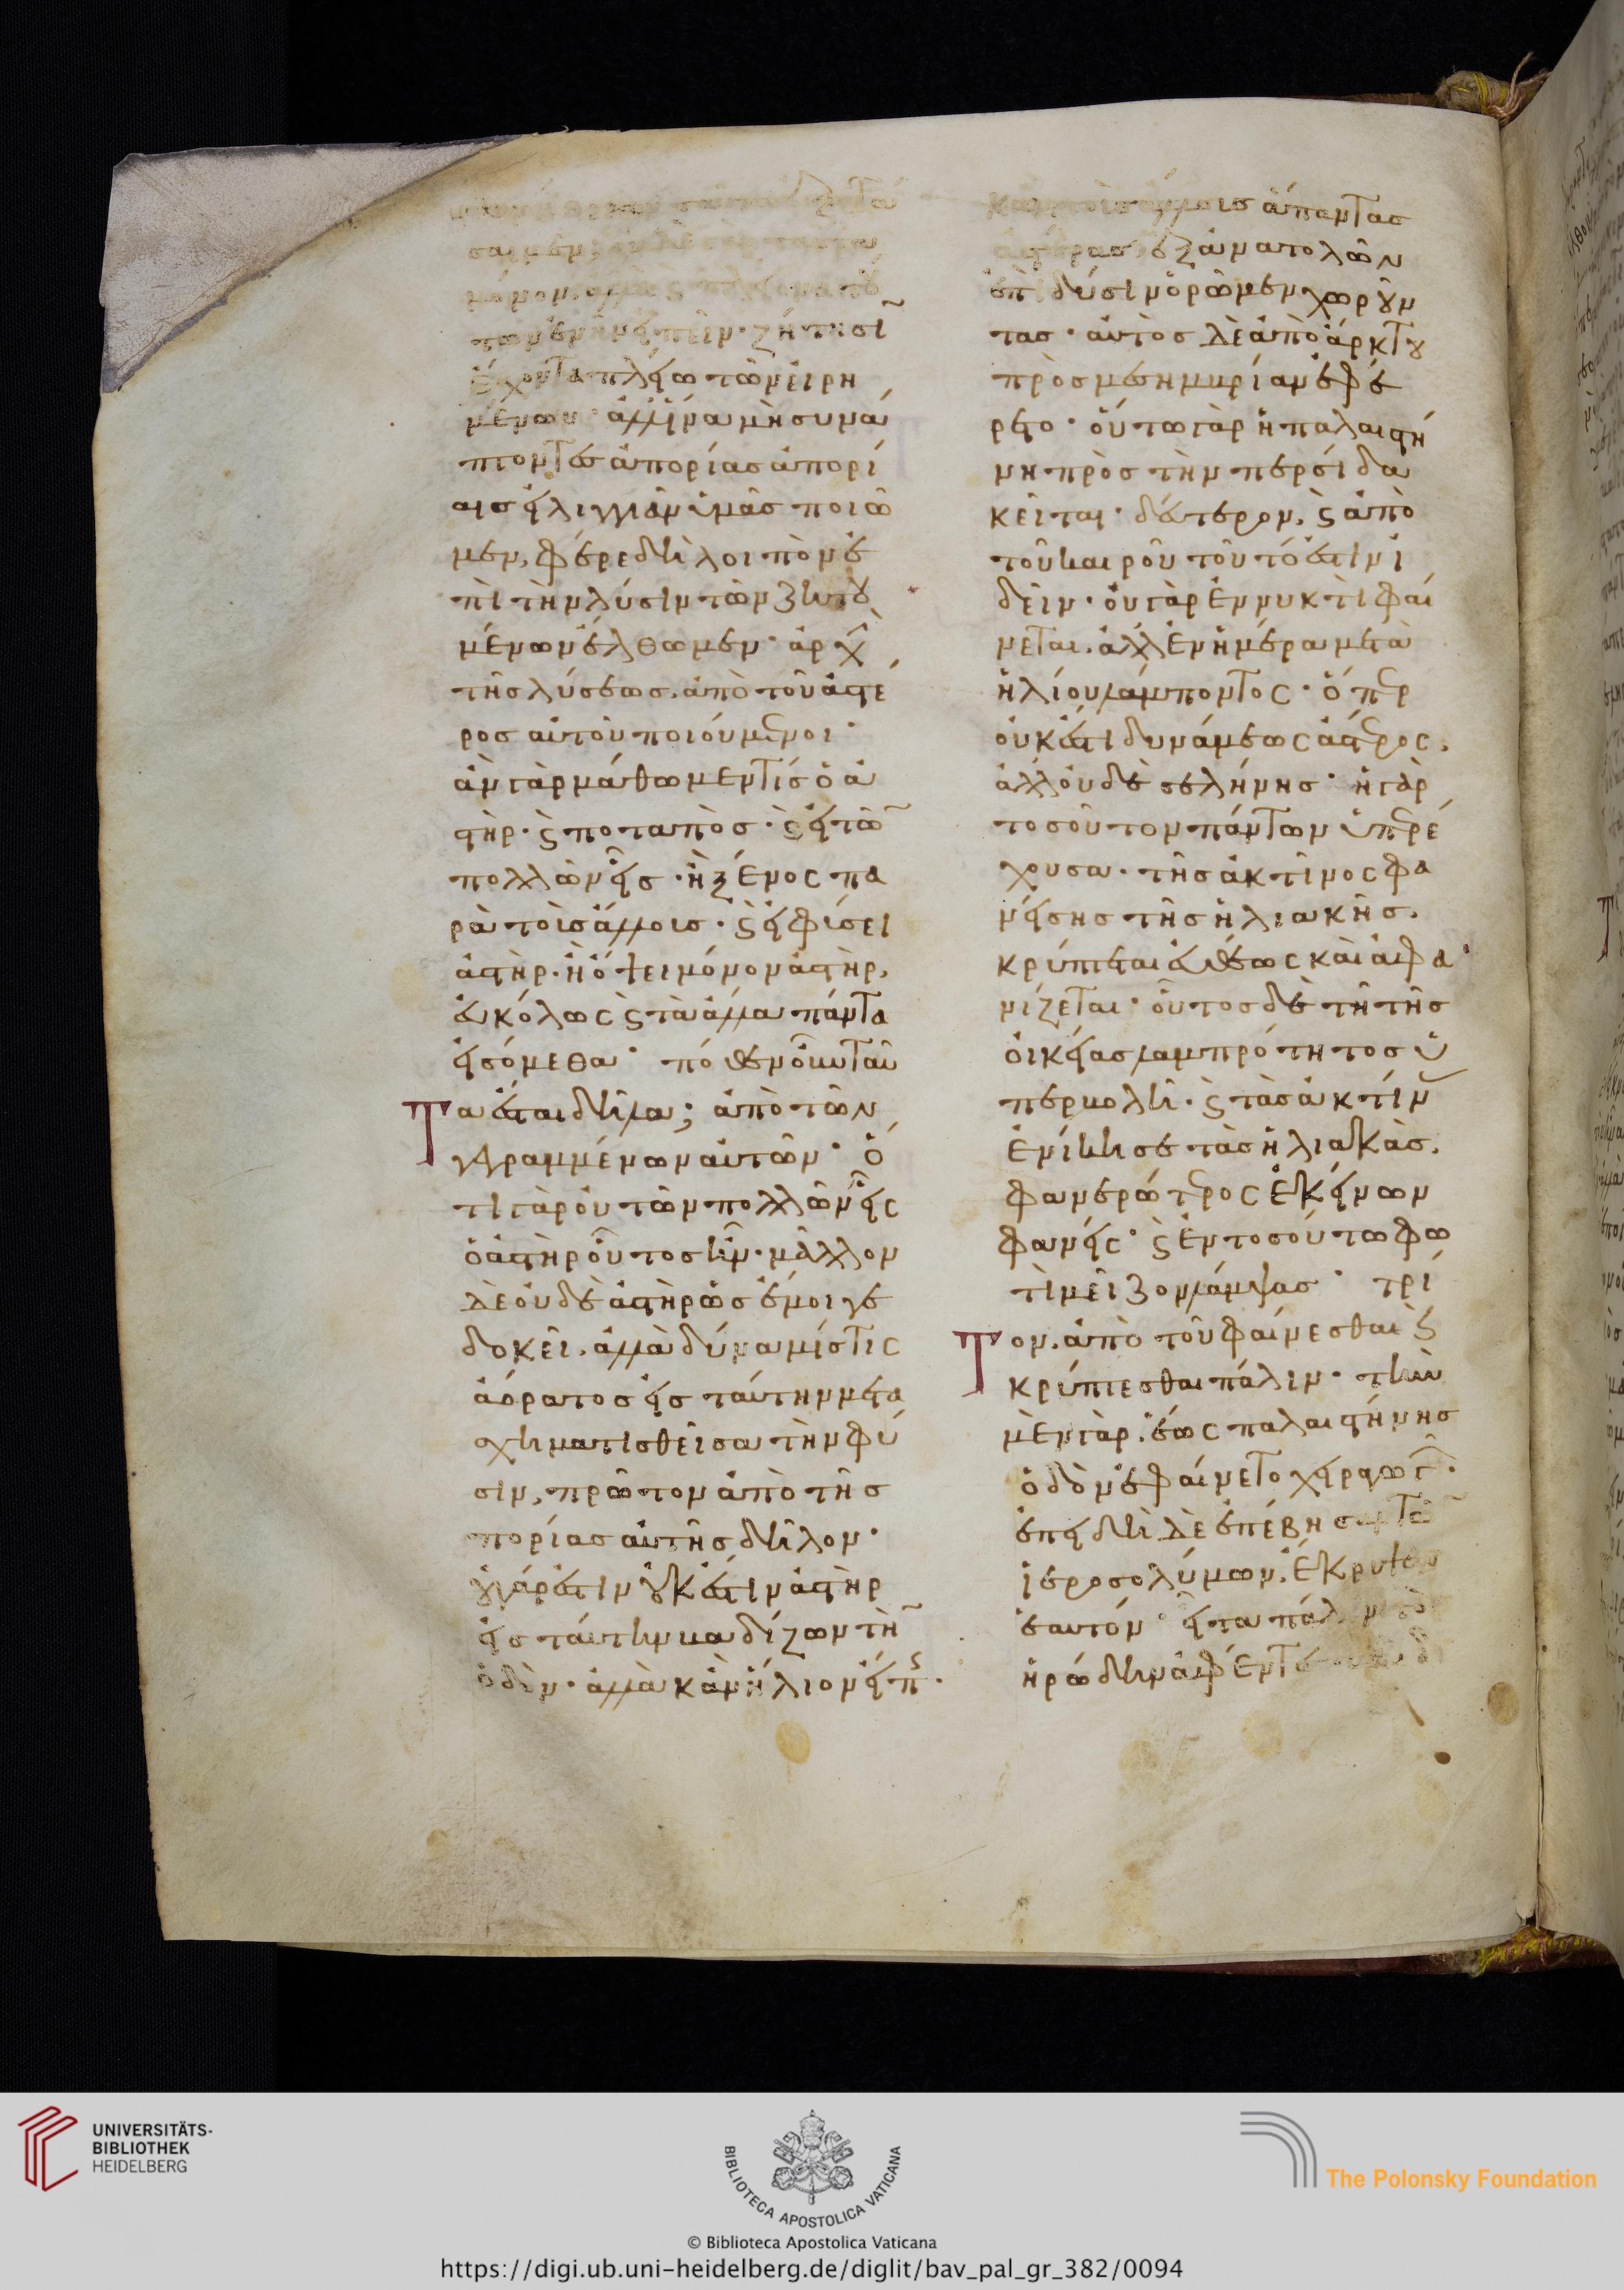 τωνἔνην εἰπεῖν· ζήτησῖ
ἔχοντα πλείω τῶν εἰρη
μένων· ἀλλ' ἵνα μὴ συνά
πτοντες ἀπορίας ἀπορί
αις εἰλιγγιᾶν ὑμᾶς ποιῶ
μεν, φέρε δὴ λοιπὸν ἐ
πὶ τὴν λύσιν τῶν ζητου
μένων ἔλθωμεν· ἀρχ
τῆς λύσεως, ἀπὸ τοῦ ἀστέ
ρος αὐτοῦ ποιούμενοι·
ἂν γὰρ μάθωμεν τίς ὁ ἀ
στὴρ· ϗ ποταπὸς· ϗ εἰ τῶ
πολλῶν εἷς· ἢ ξένος πα
ρὰ τοὶς ἄλλοις· ϗ εἰ φύσει
ἀστὴρ· ἢ ὄψει μόνον ἀστὴρ,
εὐκόλως ϗ τὰ ἄλλα πάντα
εἰσόμεθα· πόθεν οὖν ταῦ
τα ἔσται δῆλα; ἀπὸ τῶν
γεγραμμένων αὐτῶν· ὅ
τι γὰρ οὐ τῶν πολλῶν εἷς
ὁ ἀστὴρ οὗτος ἦν· μᾶλλον
δὲ οὐδὲ ἀστὴρ ὡς ἔμοιγε
δοκεῖ, ἀλλὰ δύναμίς τις
ἀόρατος εἰς ταύτην μετα
σχηματισθεῖσα τὴν φύ
σιν, πρῶτον ἀπὸ τῆς
πορίας αὐτῆς δῆλον·
οὐ γάρ ἐστιν οὐκ ἔστιν ἀστὴρ
εἰς ταύτην βαδίζων τὴ
ὁδὸν· ἀλλὰ κἂν ἥλιον εἴπ·
κἂν τοὺς ἄλλους ἅπαντας
ἀστέρας, ἐξ ἀνατολῶν
ἐπὶ δύσιν ὁρῶμεν χωροῦν
τας· αὐτὸς δὲ ἀπὸ ἄρκτου
πρὸς μεσημβρίαν ἐφέ
ρετο· οὕτω γὰρ ἡ παλαιστί
νη πρὸς τὴν περσίδα
κεῖται· δεύτερον, ϗ ἀπὸ
τοῦ καιροῦ τοῦτό ἐστιν ἰ
δεῖν· οὐ γὰρ ἐν νυκτὶ φαί
νεται, ἀλλ' ἐν ἡμέρα μετὰ
ἡλίου λάμποντος· ὅπερ
οὐκ ἔστι δυνάμεως ἀστέρος,
ἀλλ' οὐδὲ σελήνης· ἡ γὰρ
τοσοῦτον πάντων ὑπερέ
χουσα· τῆς ἀκτῖνος φα
νείσης τῆς ἡλιακῆς,
κρύπτεται εὐθέως καὶ ἀφα
νίζεται· οὗτος δὲ τῆ τῆς
οἰκείας λαμπρότητος ὑ
περβολῆ· ϗ τὰς ἀκτίν
ἐνίκησε τὰς ἡλιακὰς,
φανερώτερος ἐκείνων
φανείς· ϗ ἐν τοσούτω φω
τὶ μεῖζον λάμψας· τρί
τον, ἀπὸ τοῦ φαίνεσθαι ϗ
κρύπτεσθαι πάλιν· τὴν
μὲν γὰρ, ἕως παλαιστίνης
ὁδὸν ἐφαίνετο χειραγωγ·
ἐπειδὴ δὲ ἐπέβησαν τῶ
ἱεροσολύμων, ἔκρυψεν
ἑαυτόν· εἶτα πάλιν
ἡρώδην ἀφέντες
UNIVERSITÄTS-
BIBLIOTHEK
HEIDELBERG
BIBLIOTECA APOSTOLICA VATICANA
© Biblioteca Apostolica Vaticana
The Polonsky Foundation
https://digi.ub.uni-heidelberg.de/diglit/bav_pal_gr_382/0094